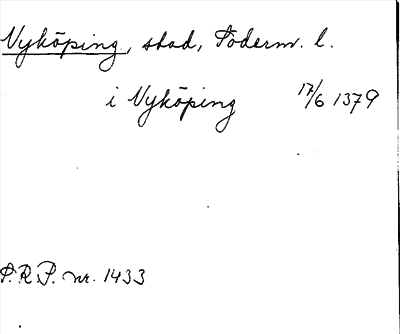 Nyköping, stad, Söderm. l.
i Nyköping 17/6 1379
S.R.P. nr. 1433